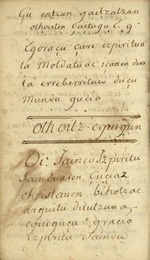 Gu entzun gaitzatzun
othoiten Carteguc. g.
Egoraçu çure izpiritua
ta Moldatuac içanen dira
ta erreberrituco duçu
Mundu guçia
othoitz eguigun
O! Jainco Izpiritu
Sainduaren Guciaz
christauen bihotzac
arguitu ditutzuna
eguiguçu gracia
Izpiritu Saindu